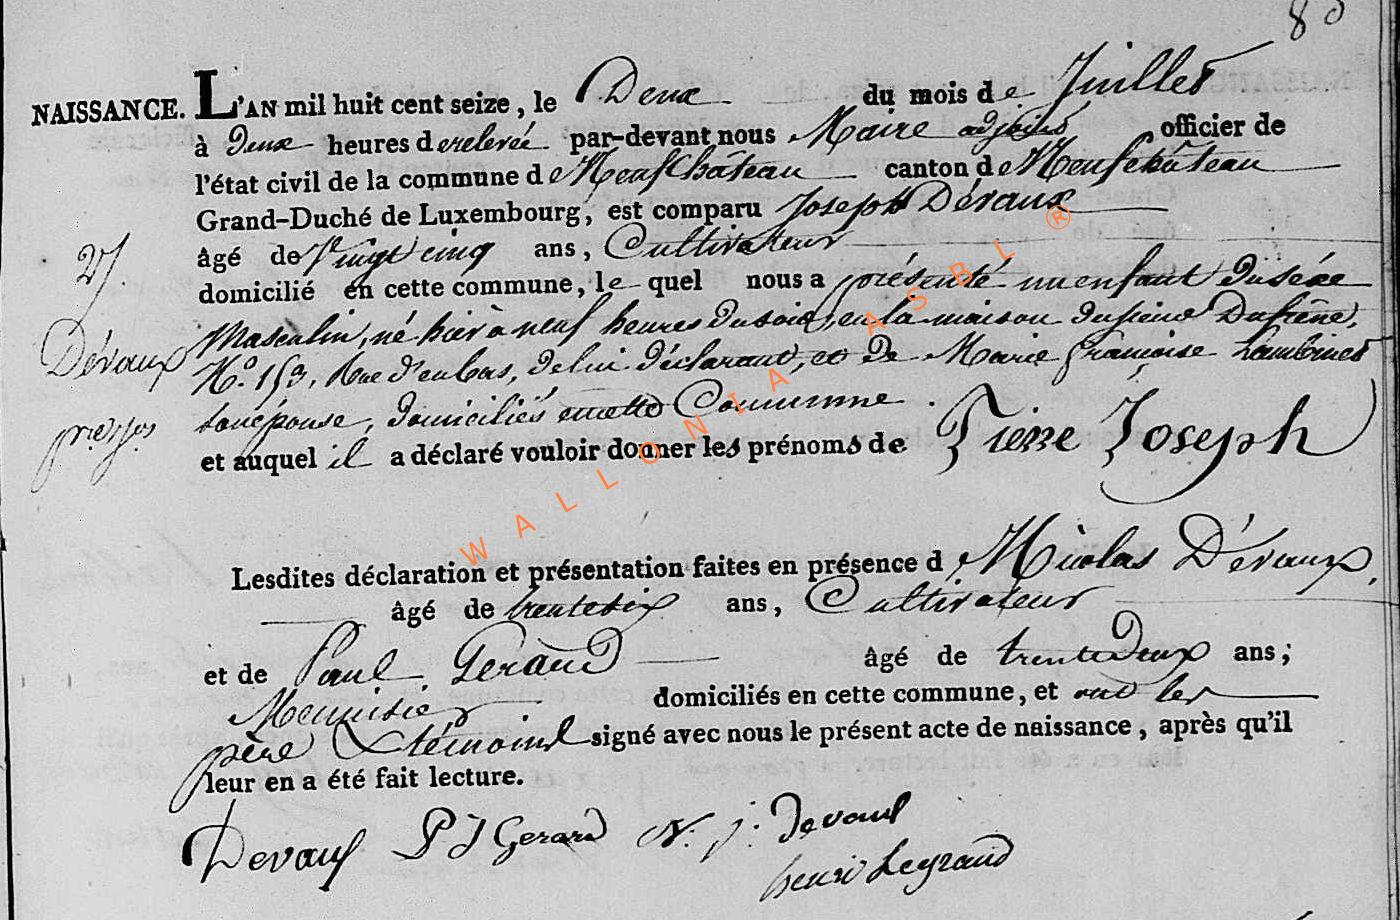 83
NAISSANCE. L'AN mil huit cent seize, le Deux du mois de Juillet
à deux heures de relevée par-devant nous Maire adjoint officier de
l'état civil de la commune de Neufchâteau canton de Neufchâteau
Grand-Duché de Luxembourg, est comparu Joseph Dévaux
âgé de Vingt cinq ans, Cultivateur
domicilié en cette commune, le quel nous a présenté un enfant du sexe
Masculin, né hier à neuf heures du soir, en la maison du sieur Dufrêne,
N.o 153, Rue d'en bas, de lui déclarant, et de Marie françoise Lambinet
son épouse, domiciliés en cette Commune.
et auquel il a déclaré vouloir donner les prénoms de Pierre Joseph
27
Dévaux
Lesdites déclaration et présentation faites en présence d Nicolas Dévaux,
âgé de trente six ans, Cultivateur
et de Paul Gerard âgé de trente deux ans;
Menuisier domiciliés en cette commune, et ont les
père & témoins signé avec nous le présent acte de naissance, après qu'il
leur en a été fait lecture.
Devaux P J Gerard N. j. Devaux
henri Legrand
WALLONIA ASBL ®